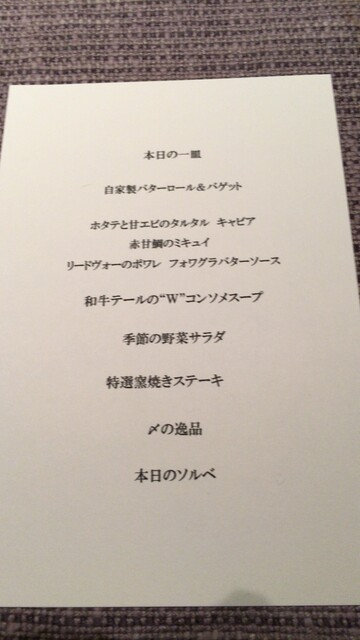 本日の一皿
自家製バターロール＆バゲット
ホタテと甘エビのタルタル　キャビア
赤甘鯛のミキュイ
リードヴォーのポワレ　フォワグラバターソース
和牛テールの“W”コンソメスープ
季節の野菜サラダ
特選窯焼きステーキ
〆の逸品
本日のソルベ